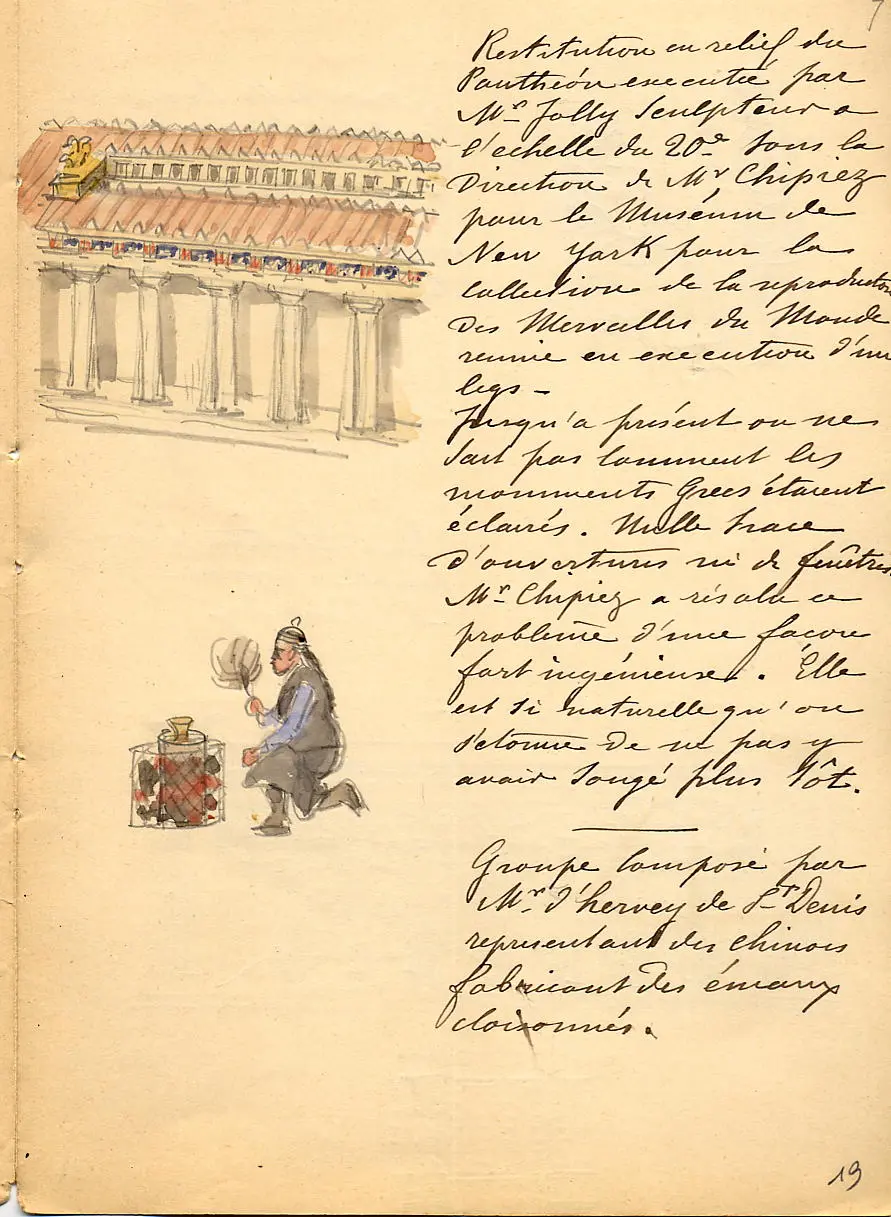 7
Restitution en relief du
Panthéon executée par
Mr Jolly Sculpteur a
l'echelle du 20e sous la
Direction de Mr Chipiez
pour le Muséum de
New York pour la
collection de la reproduction
des Merveilles du Monde
reunie en execution d'un
legs -
Jusqu'a présent on ne
sait pas comment les
monuments Grecs étaient
éclairés. Nulle trace
d'ouvertures ni de fenêtres
Mr Chipiez a résolu ce
problême d'une façon
fort ingénieuse. Elle
est si naturelle qu'on
s'etonne de ne pas y
avoir songé plus tôt.
Groupe composé par
Mr d'hervey de St Denis
representant des chinois
fabricant des émaux
cloisonnés.
19